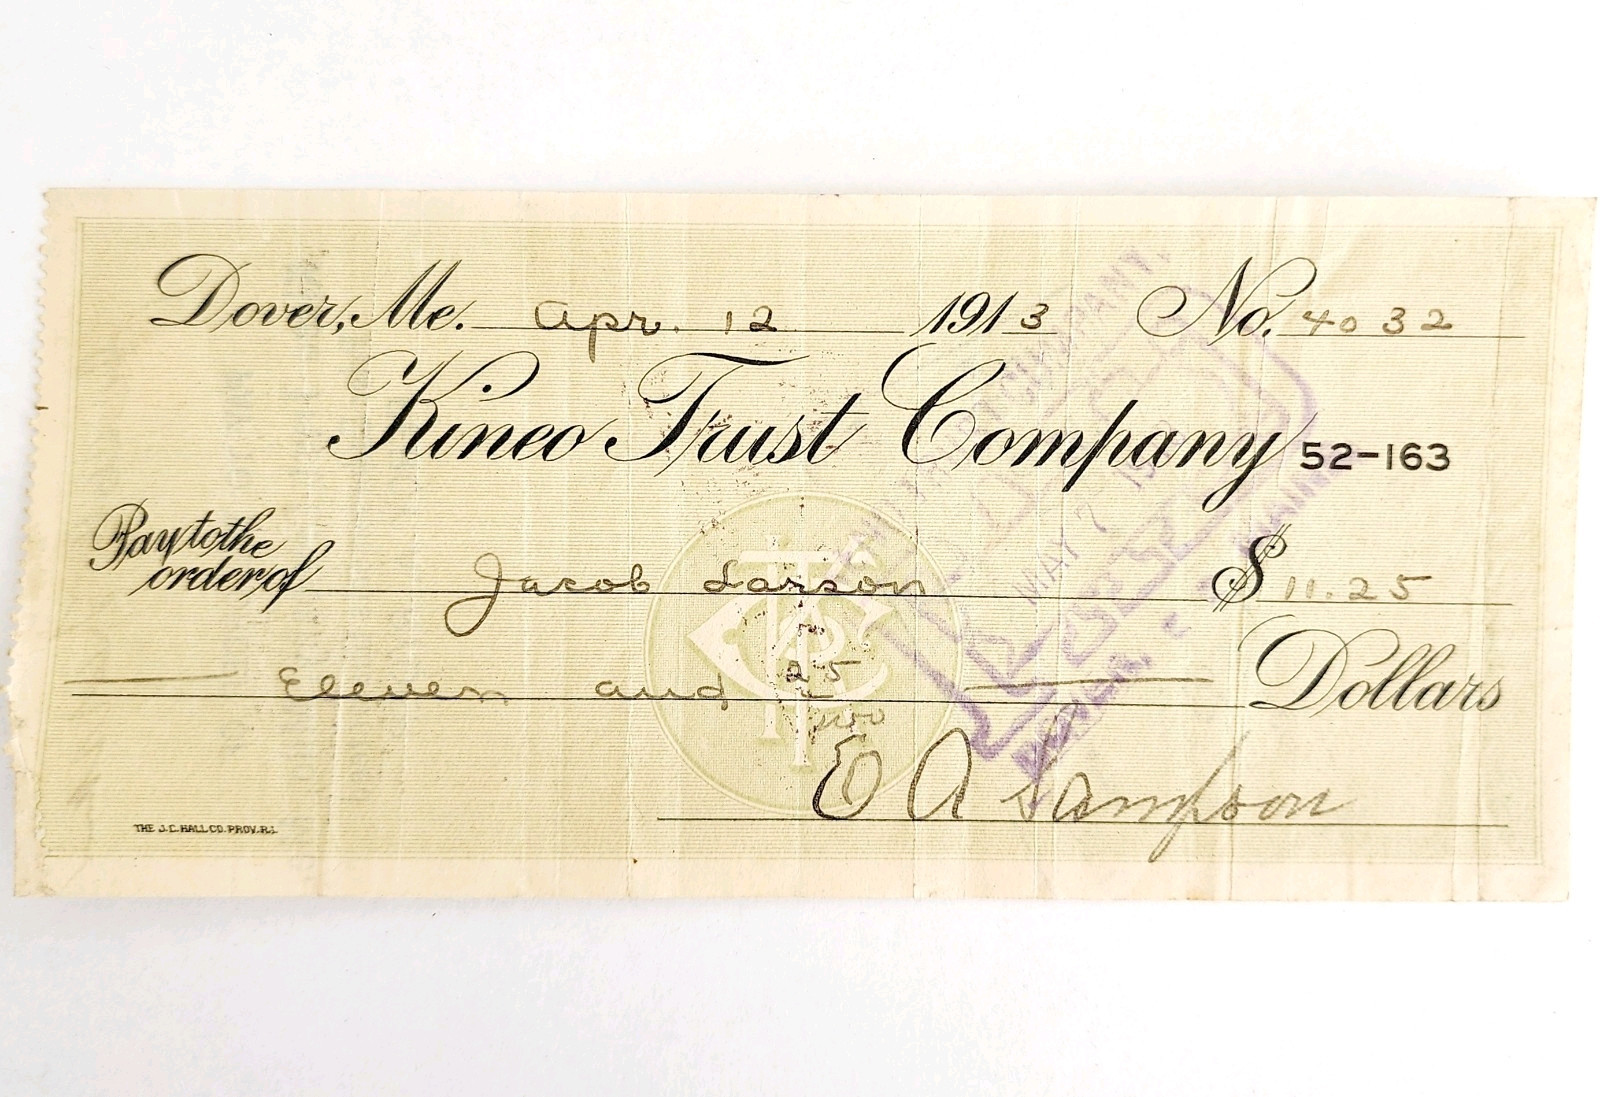 Dover, Me. Apr. 12 1913 No. 4032
Kineo Trust Company 52-163
Pay to the
order of Jacob Larson $ 11.25
Eleven and 25/100 Dollars
E A Sampson
THE J.C. HALL CO. PROV. R.I.
COMPANY,
MAY 7
PAID
MAINE